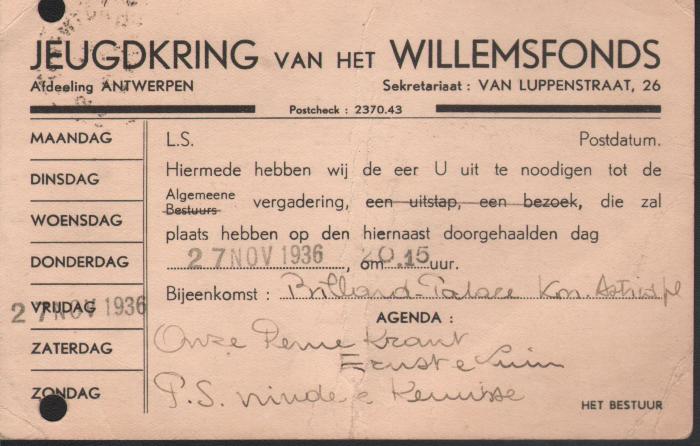 JEUGDKRING VAN HET WILLEMSFONDS
Afdeeling ANTWERPEN Sekretariaat : VAN LUPPENSTRAAT, 26
Postcheck : 2370.43
MAANDAG
DINSDAG
WOENSDAG
DONDERDAG
VRIJDAG
27 NOV 1936
ZATERDAG
ZONDAG
L.S. Postdatum.
Hiermede hebben wij de eer U uit te noodigen tot de
Algemeene
Bestuurs vergadering, een uitstap, een bezoek, die zal
plaats hebben op den hiernaast doorgehaalden dag
27 NOV 1936, om 20.15 uur.
Bijeenkomst : Billard-Palace Kon. Astridpl
AGENDA :
Onze Penne Krant
Ernst e
P.S.
HET BESTUUR